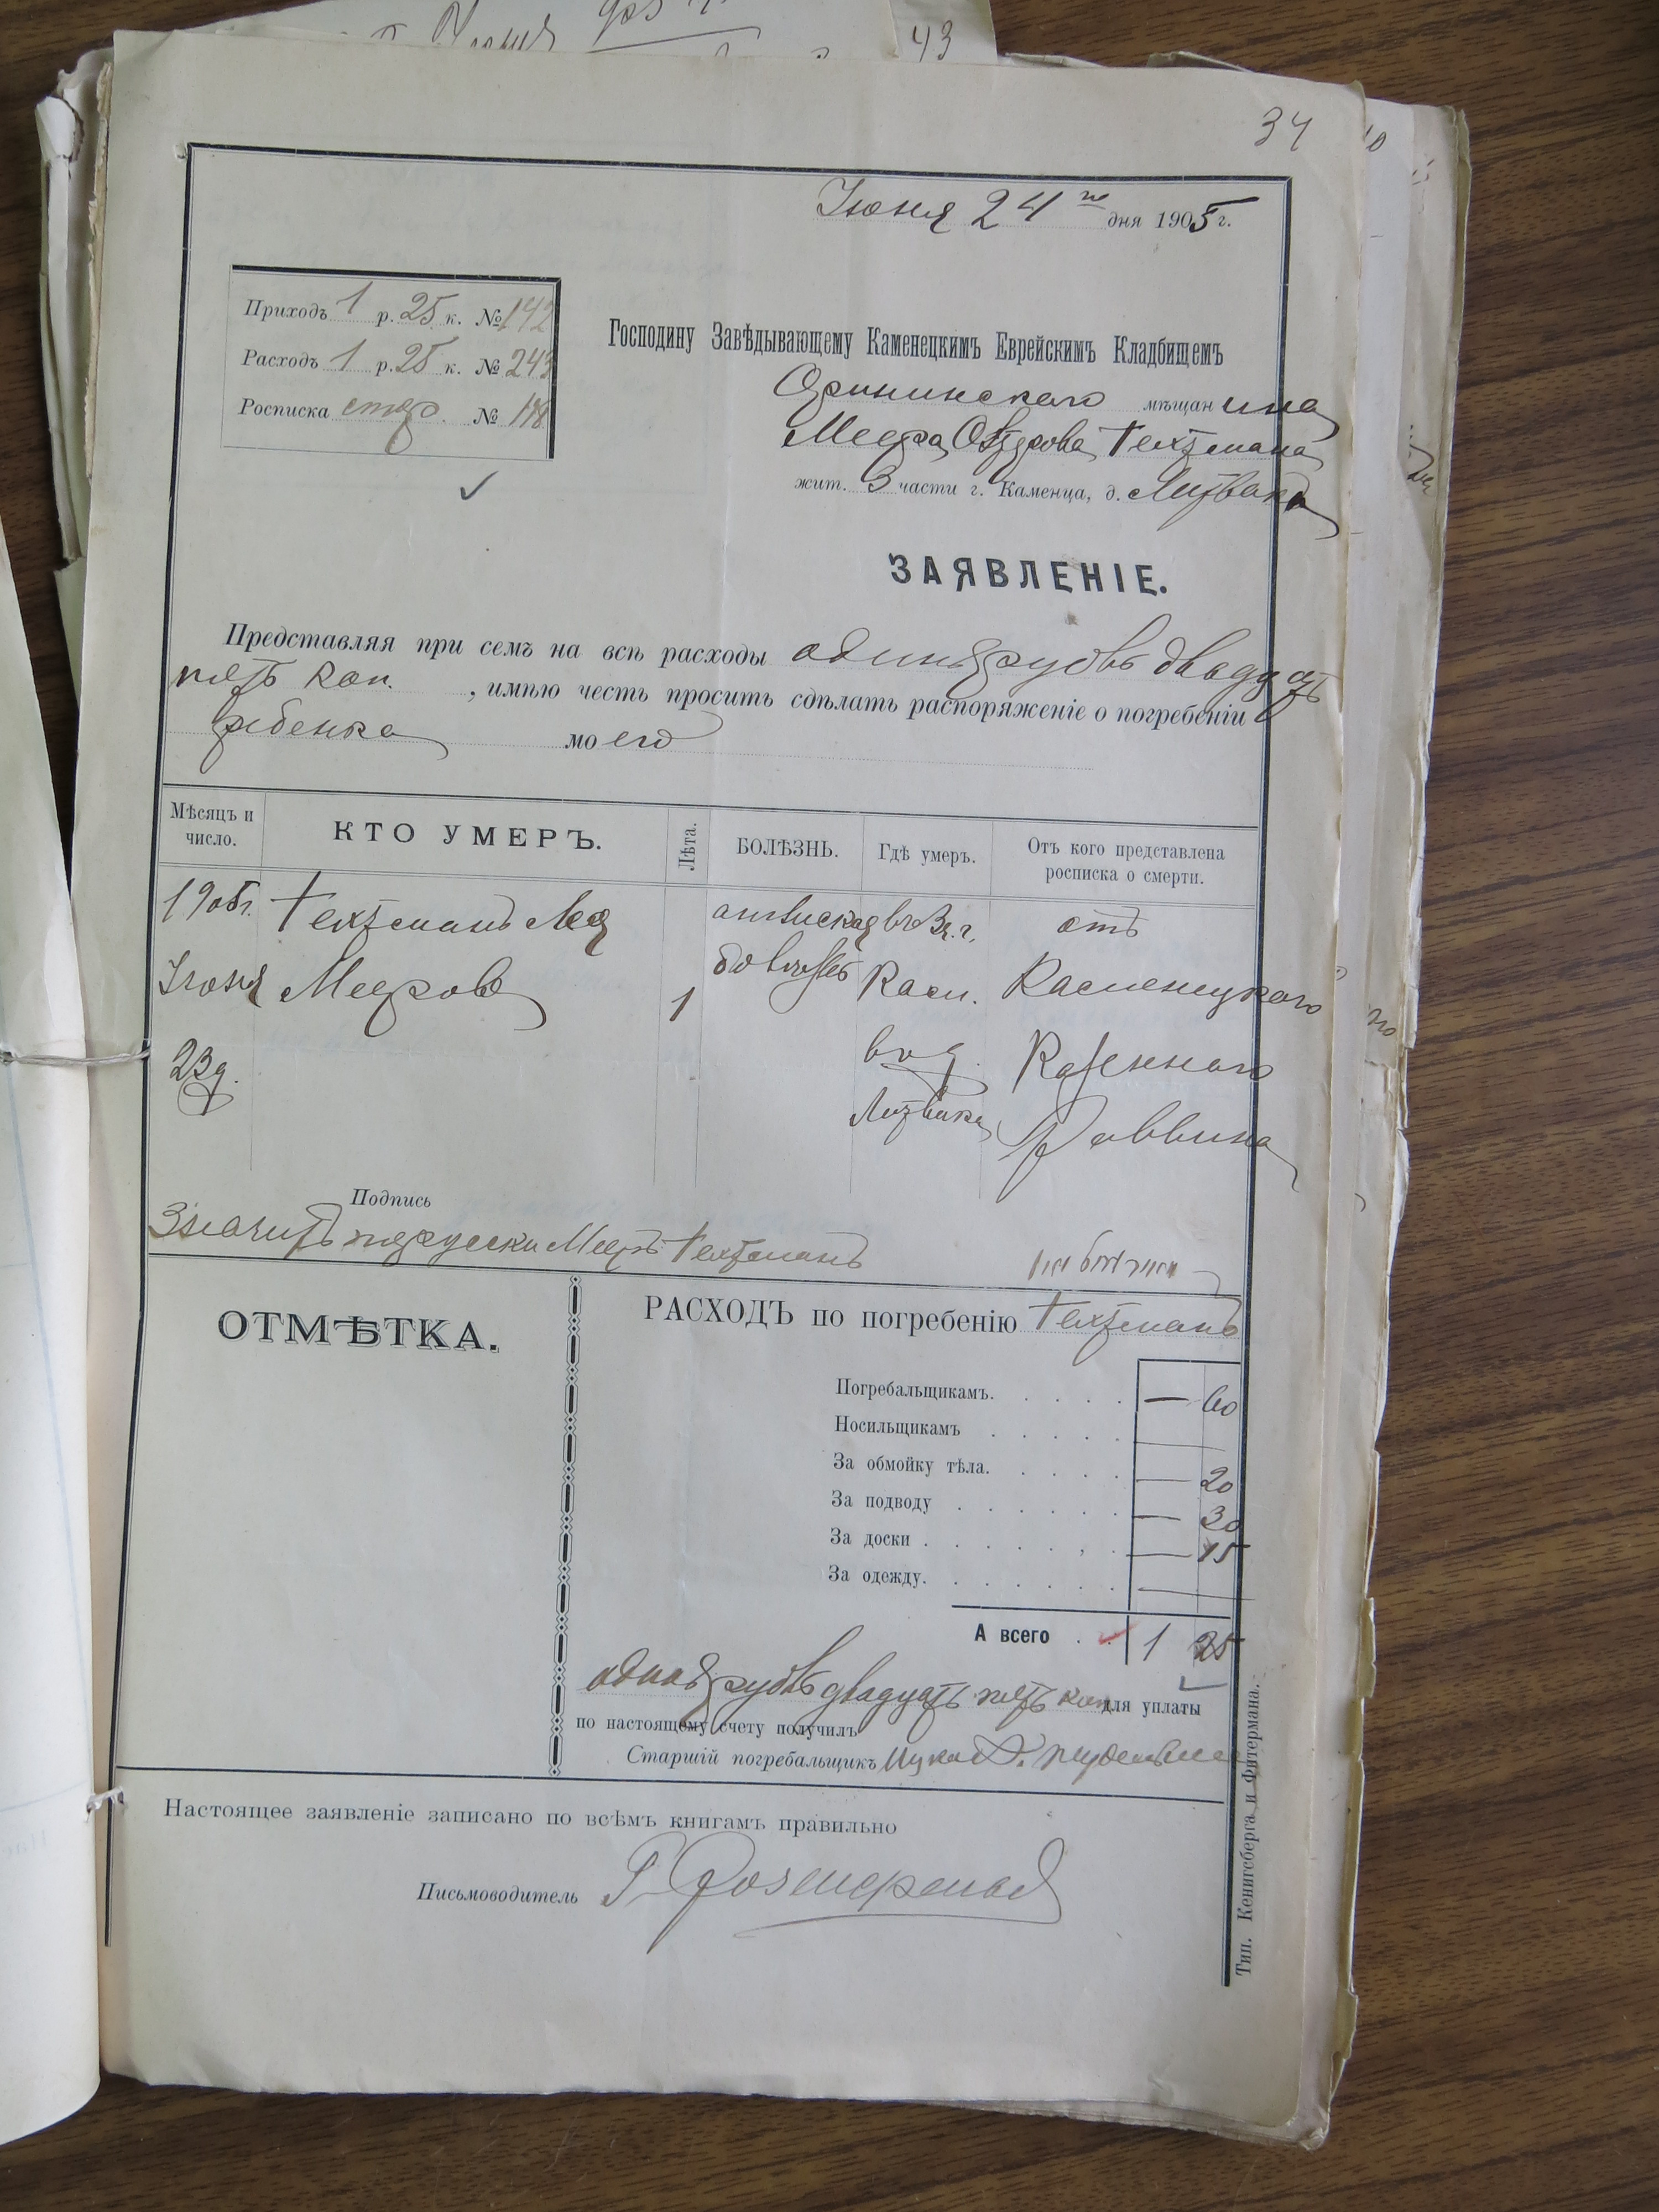 43
34
Июня 24 го дня 1905 г.
Приходъ 1 р. 25 к. № 142
Расходъ 1 р. 25 к. № 243
Росписка № 148
Господину Завѣдывающему Каменецкимъ Еврейскимъ Кладбищемъ
Орининскаго мѣщанина
Меера Техтмана
жит. 3 части г. Каменца, д. Литвака
ЗАЯВЛЕНІЕ.
Представляя при семъ на всѣ расходы одинъ рубль двадцать
пять коп. , имѣю честь просить сдѣлать распоряженіе о погребеніи
ребенка моего
Мѣсяцъ и число. КТО УМЕРЪ. Лѣта. БОЛѢЗНЬ. Гдѣ умеръ. Отъ кого представлена росписка о смерти.
1905г. Техтманъ Лея английская въ 3 ч. г. отъ
Июня Меерова 1 болѣзнь Кам. Каменецкаго
23 д. в д. Казеннаго
Литвака Раввина
Подпись
Значитъ по русски Мееръ Техтманъ
ОТМѢТКА.
РАСХОДЪ по погребенію Техтманъ
Погребальщикамъ. — 60
Носильщикамъ —
За обмойку тѣла. — 20
За подводу — 30
За доски — 15
За одежду. —
А всего 1 25
одинъ рубль двадцать пять коп для уплаты
по настоящему счету получилъ
Старшій погребальщикъ Ицко
Настоящее заявленіе записано по всѣмъ книгамъ правильно
Письмоводитель
Тип. Кенигсберга и Фитермана.